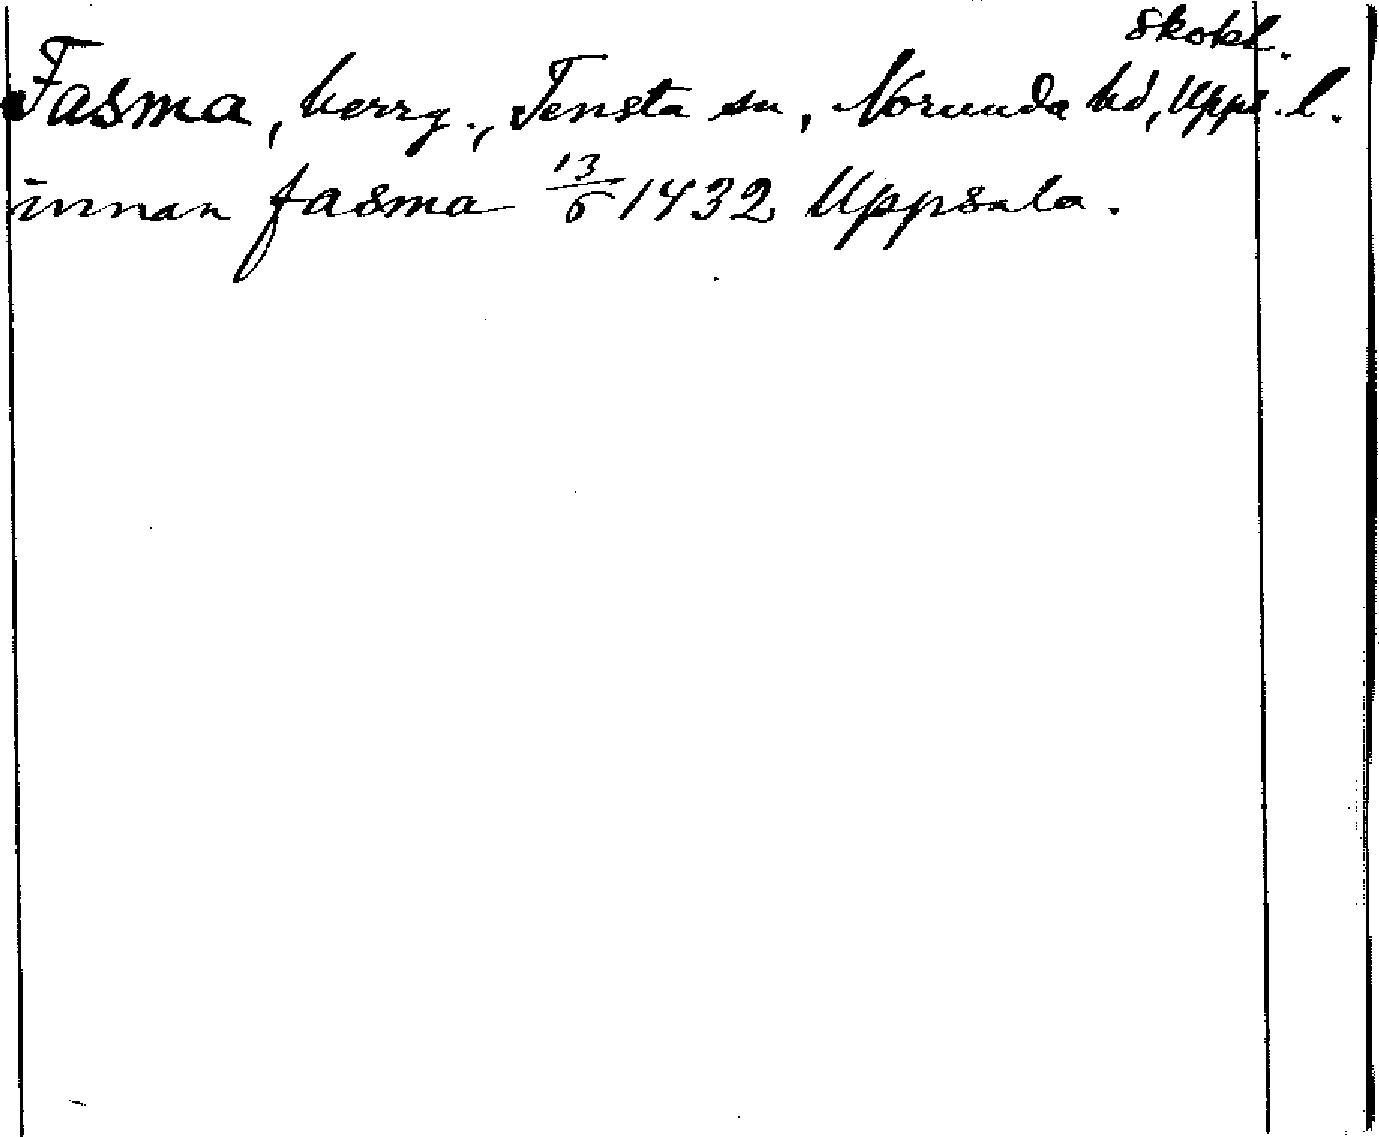 skokl.
Fasma, herrg., Tensta sn, Norunda hd, Upps. l.
innan fasma 13/6 1432 Uppsala.